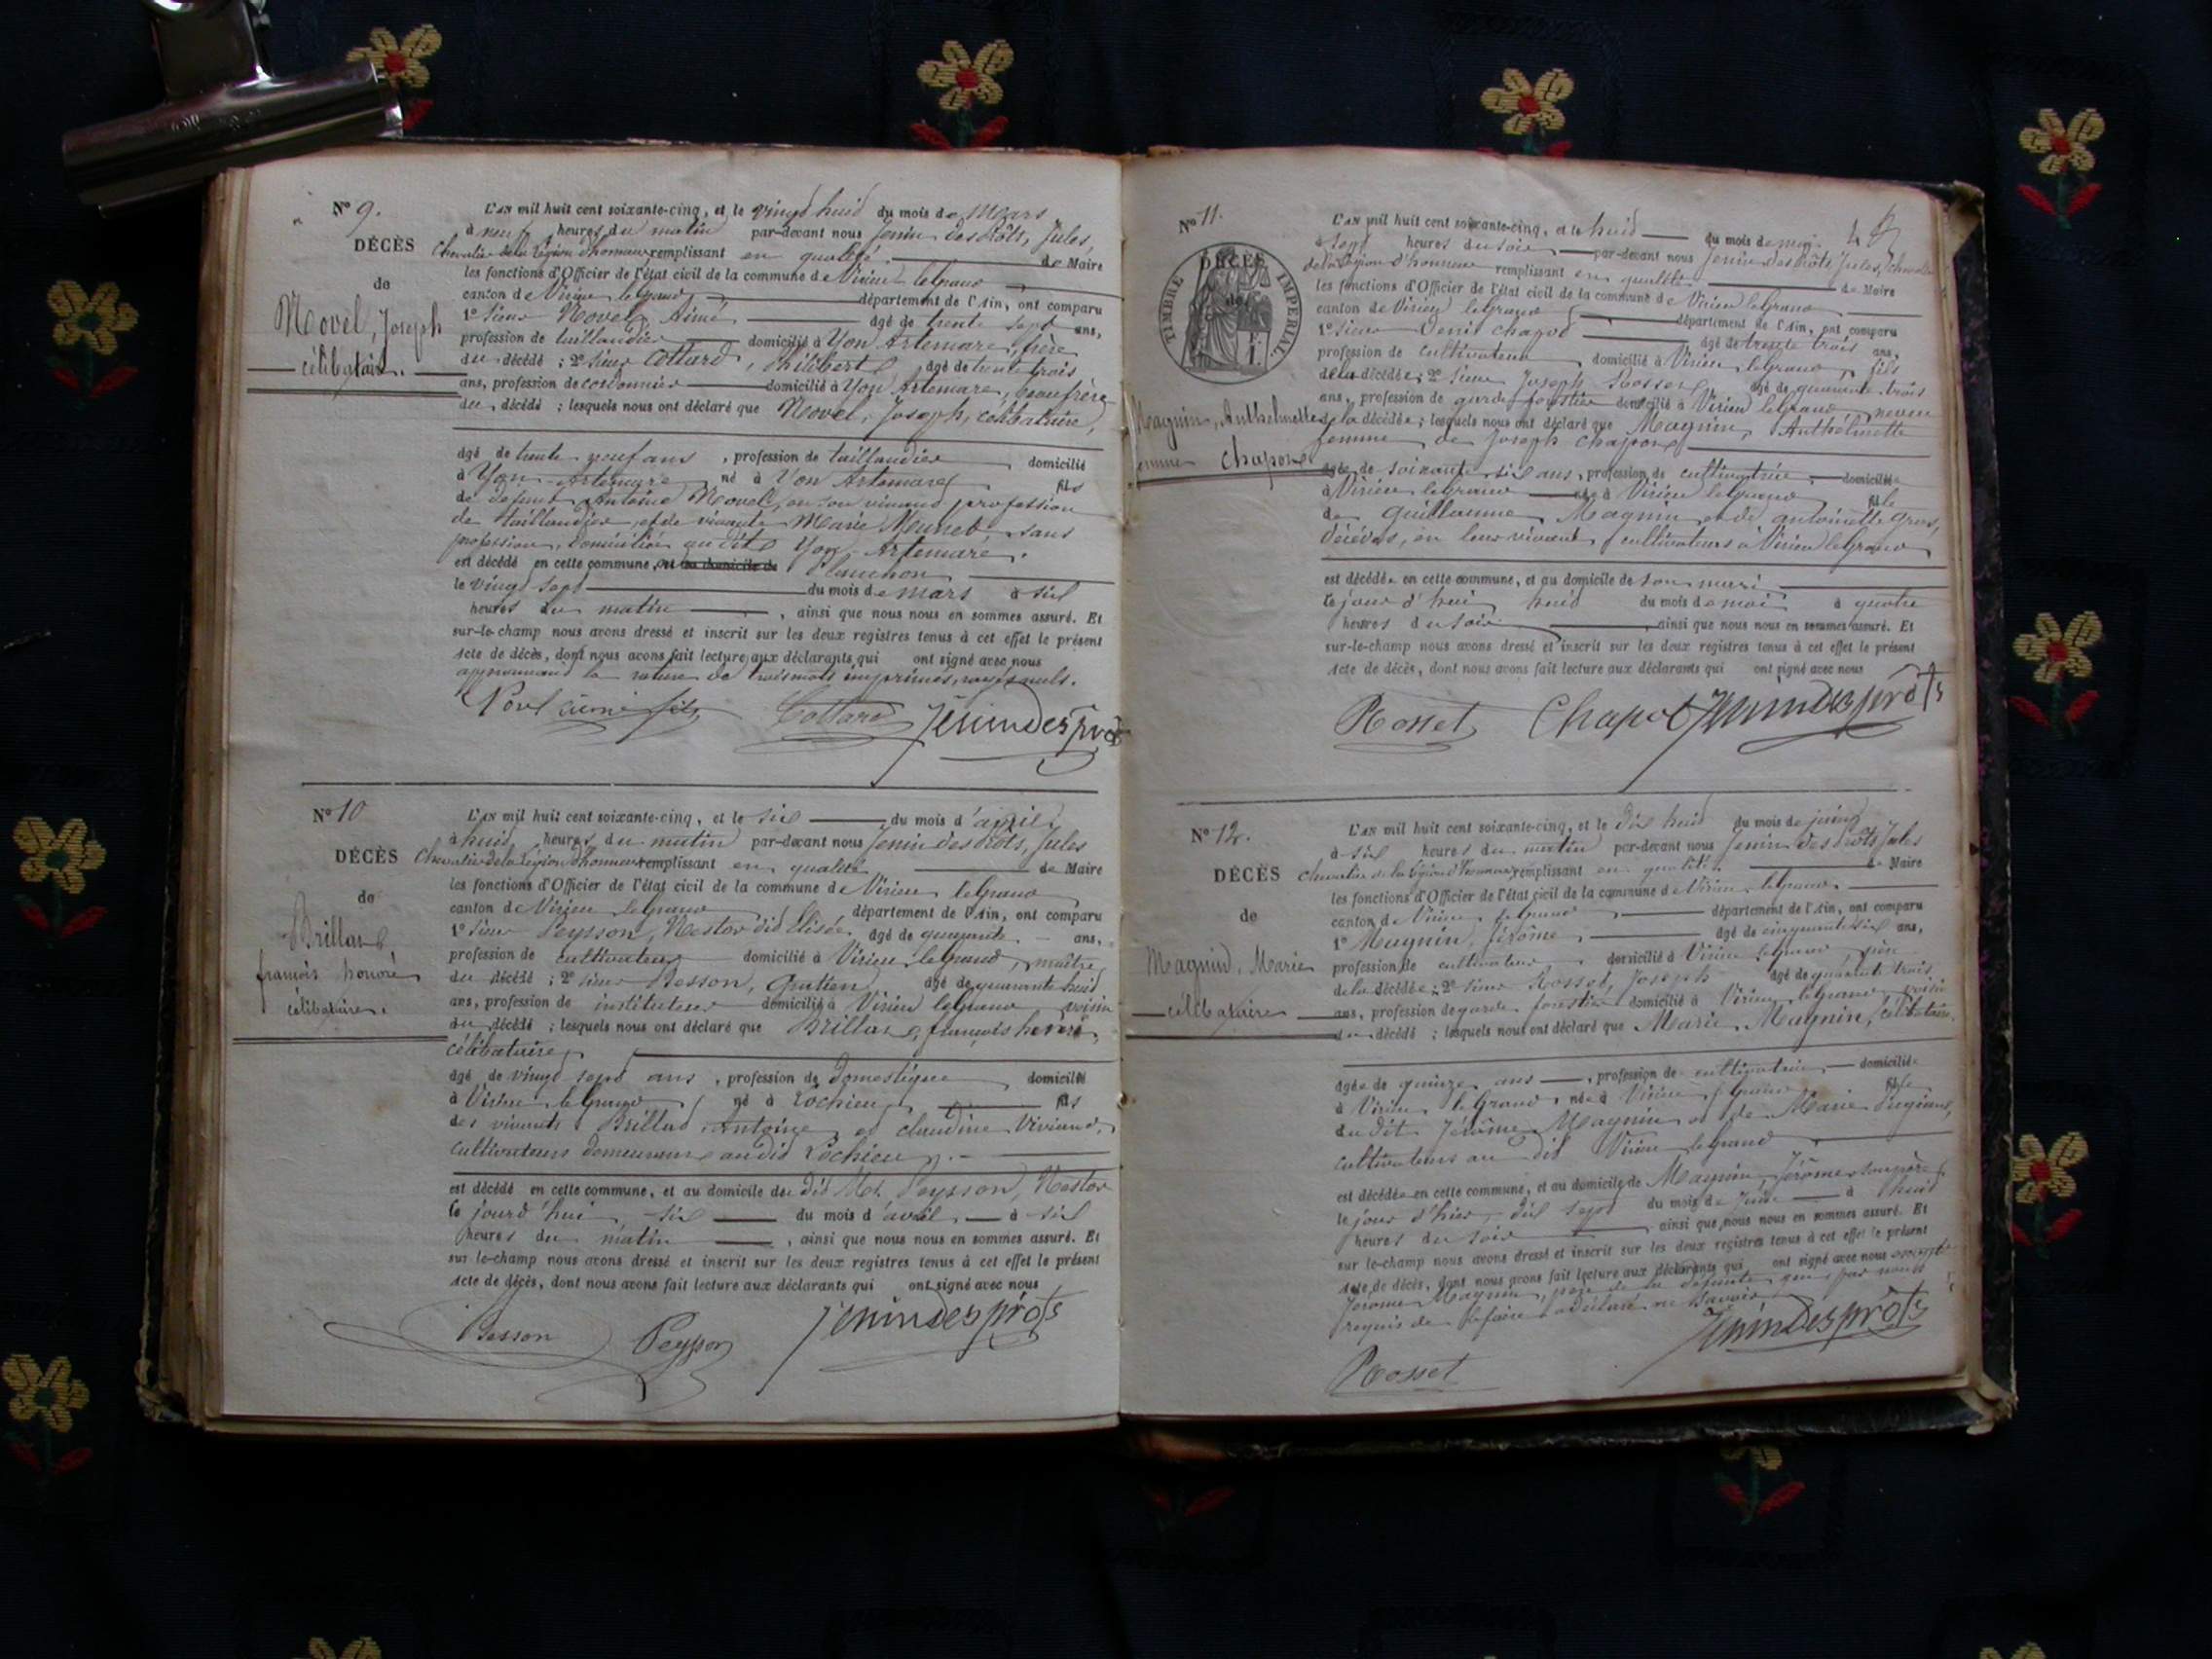 N° 9.
DÉCÈS
de
Novel, Joseph
célibataire.
L'an mil huit cent soixante-cinq, et le vingt huit du mois de Mars
à neuf heures du matin par-devant nous Jenin des Prôts, Jules,
Chevalier de la Légion d'honneur remplissant en qualité de Maire
les fonctions d'Officier de l'état civil de la commune de Virieu le grand
canton de Virieu le grand département de l'Ain, ont comparu
1° sieur Novel, Aimé, âgé de trente sept ans,
profession de taillandier domicilié à Yon Artemare, frère
du décédé ; 2° sieur Cottard, Philibert âgé de trente trois
ans, profession de cordonnier domicilié à Yon Artemare, beau frère
du décédé ; lesquels nous ont déclaré que Novel, Joseph, célibataire,
âgé de trente neuf ans, profession de taillandier domicilié
à Yon Artemare, né à Yon Artemare fils
de défunt Antoine Novel, en son vivant profession
de taillandier, et de vivante Marie Monnet sans
profession, domiciliée au dit Yon-Artemare.
est décédé en cette commune, et au domicile de
le vingt sept du mois de mars à six
heures du matin, ainsi que nous nous en sommes assuré. Et
sur-le-champ nous avons dressé et inscrit sur les deux registres tenus à cet effet le présent
acte de décès, dont nous avons fait lecture aux déclarants qui ont signé avec nous
approuvant la rature de trois mots imprimés, rayés nuls.
Novel aimé fils Cottard Jenindesprôts
N° 10
DÉCÈS
de
Brillat
françois honoré
célibataire.
L'an mil huit cent soixante-cinq, et le six du mois d'avril
à huit heures du matin par-devant nous Jenin des Prôts, Jules
Chevalier de la Légion d'honneur remplissant en qualité de Maire
les fonctions d'Officier de l'état civil de la commune de Virieu le grand
canton de Virieu le grand département de l'Ain, ont comparu
1° sieur Peysson, Nestor dit Elisée âgé de quarante ans,
profession de cultivateur domicilié à Virieu le grand, maître
du décédé ; 2° sieur Besson, Gratien âgé de quarante huit
ans, profession de instituteur domicilié à Virieu le grand voisin
du décédé ; lesquels nous ont déclaré que Brillat, françois honoré,
célibataire,
âgé de vingt sept ans, profession de domestique domicilié
à Virieu le grand, né à Lochieu, fils
des vivants Brillat Antoine et claudine Viviand,
cultivateurs demeurant audit Lochieu.
est décédé en cette commune, et au domicile du dit Mr. Peysson, Nestor
le jourd'hui six du mois d'avril à six
heures du matin, ainsi que nous nous en sommes assuré. Et
sur-le-champ nous avons dressé et inscrit sur les deux registres tenus à cet effet le présent
acte de décès, dont nous avons fait lecture aux déclarants qui ont signé avec nous
Besson Peysson Jenindesprôts
N° 11.
DÉCÈS
de
TIMBRE IMPÉRIAL
Magnin, Anthelmette
femme Chapot
L'an mil huit cent soixante-cinq, et le huit du mois de mai
à sept heures du soir par-devant nous Jenin des Prôts, Jules, chevalier
de la Légion d'honneur remplissant en qualité de Maire
les fonctions d'Officier de l'état civil de la commune de Virieu le Grand
canton de Virieu le Grand département de l'Ain, ont comparu
1° sieur Denis chapot âgé de trente trois ans,
profession de cultivateur domicilié à Virieu le grand, fils
de la décédée ; 2° sieur Joseph Rosset, âgé de quarante trois
ans, profession de garde forestier domicilié à Virieu le grand, neveu
de la décédée ; lesquels nous ont déclaré que Magnin, Anthelmette
femme de Joseph chapot
âgée de soixante six ans, profession de cultivatrice, domiciliée
à Virieu le grand née à Virieu le grand fille
de Guillaume Magnin et de antoinette Gros,
décédés, en leur vivant cultivateurs à Virieu le grand
est décédée en cette commune, et au domicile de son mari
le jour d'hui huit du mois de mai à quatre
heures du soir, ainsi que nous nous en sommes assuré. Et
sur-le-champ nous avons dressé et inscrit sur les deux registres tenus à cet effet le présent
acte de décès, dont nous avons fait lecture aux déclarants qui ont signé avec nous
Rosset Chapot Jenindesprôts
N° 12.
DÉCÈS
de
Magnin, Marie
célibataire
L'an mil huit cent soixante-cinq, et le dix huit du mois de juin
à six heures du matin par-devant nous Jenin des Prôts Jules
chevalier de la Légion d'honneur remplissant en qualité de Maire
les fonctions d'Officier de l'état civil de la commune de Virieu le grand.
canton de Virieu le grand département de l'Ain, ont comparu
1° Magnin, Jérôme, âgé de cinquante six ans,
profession de cultivateur domicilié à Virieu le grand père
de la décédée ; 2° sieur Rosset, Joseph âgé de quarante trois
ans, profession de garde forestier domicilié à Virieu le grand voisin
du décédé ; lesquels nous ont déclaré que Marie Magnin, célibataire,
âgée de quinze ans, profession de cultivatrice, domiciliée
à Virieu le Grand, née à Virieu le grand fille
du dit Jérôme Magnin et de Marie
cultivateurs au dit Virieu le grand
est décédée en cette commune, et au domicile de Magnin, Jérôme son père
le jour d'hier dix sept du mois de Juin à huit
heures du soir ainsi que nous nous en sommes assuré. Et
sur-le-champ nous avons dressé et inscrit sur les deux registres tenus à cet effet le présent
acte de décès, dont nous avons fait lecture aux déclarants qui ont signé avec nous excepté
Jérôme Magnin, père de la défunte, qui, par nous
requis de le faire a déclaré ne savoir
Jenindesprôts
Rosset